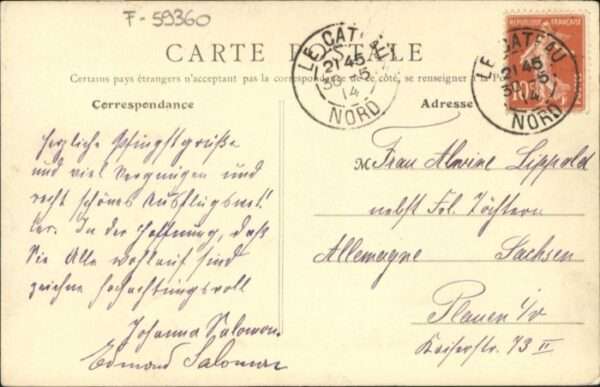 F-59360
CARTE POSTALE
Certains pays étrangers n'acceptant pas la correspondance de ce côté, se renseigner à la Po
Correspondance
Adresse
RÉPUBLIQUE FRANÇAISE
LE CATEAU
21 45
30-5
14
NORD
LE CATEAU
21 45
30-5
14
NORD
Herzliche Pfingstgrüße
und viel Vergnügen und
recht schönes Ausflugswet-
ter. In der Hoffnung, daß
Sie Alle wohlauf sind
zeichne Hochachtungsvoll
Johanna Salomon.
Edmond Salomon
Frau Alwine Lippold
nebst Frl. Töchtern
Allemagne Sachsen
Plauen i/V
Kaiserstr. 73 II